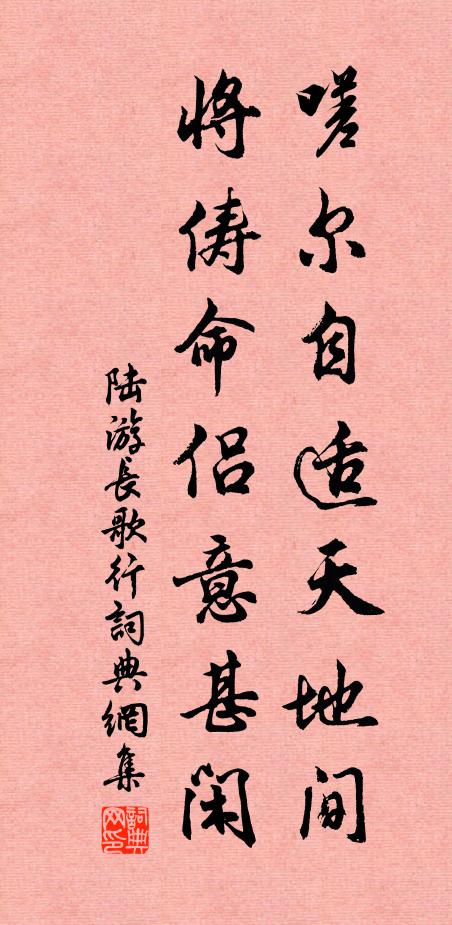 嗟尔自适天地间
将俦命侣意甚闲
陆游長歌行詞典網集
詞典网印